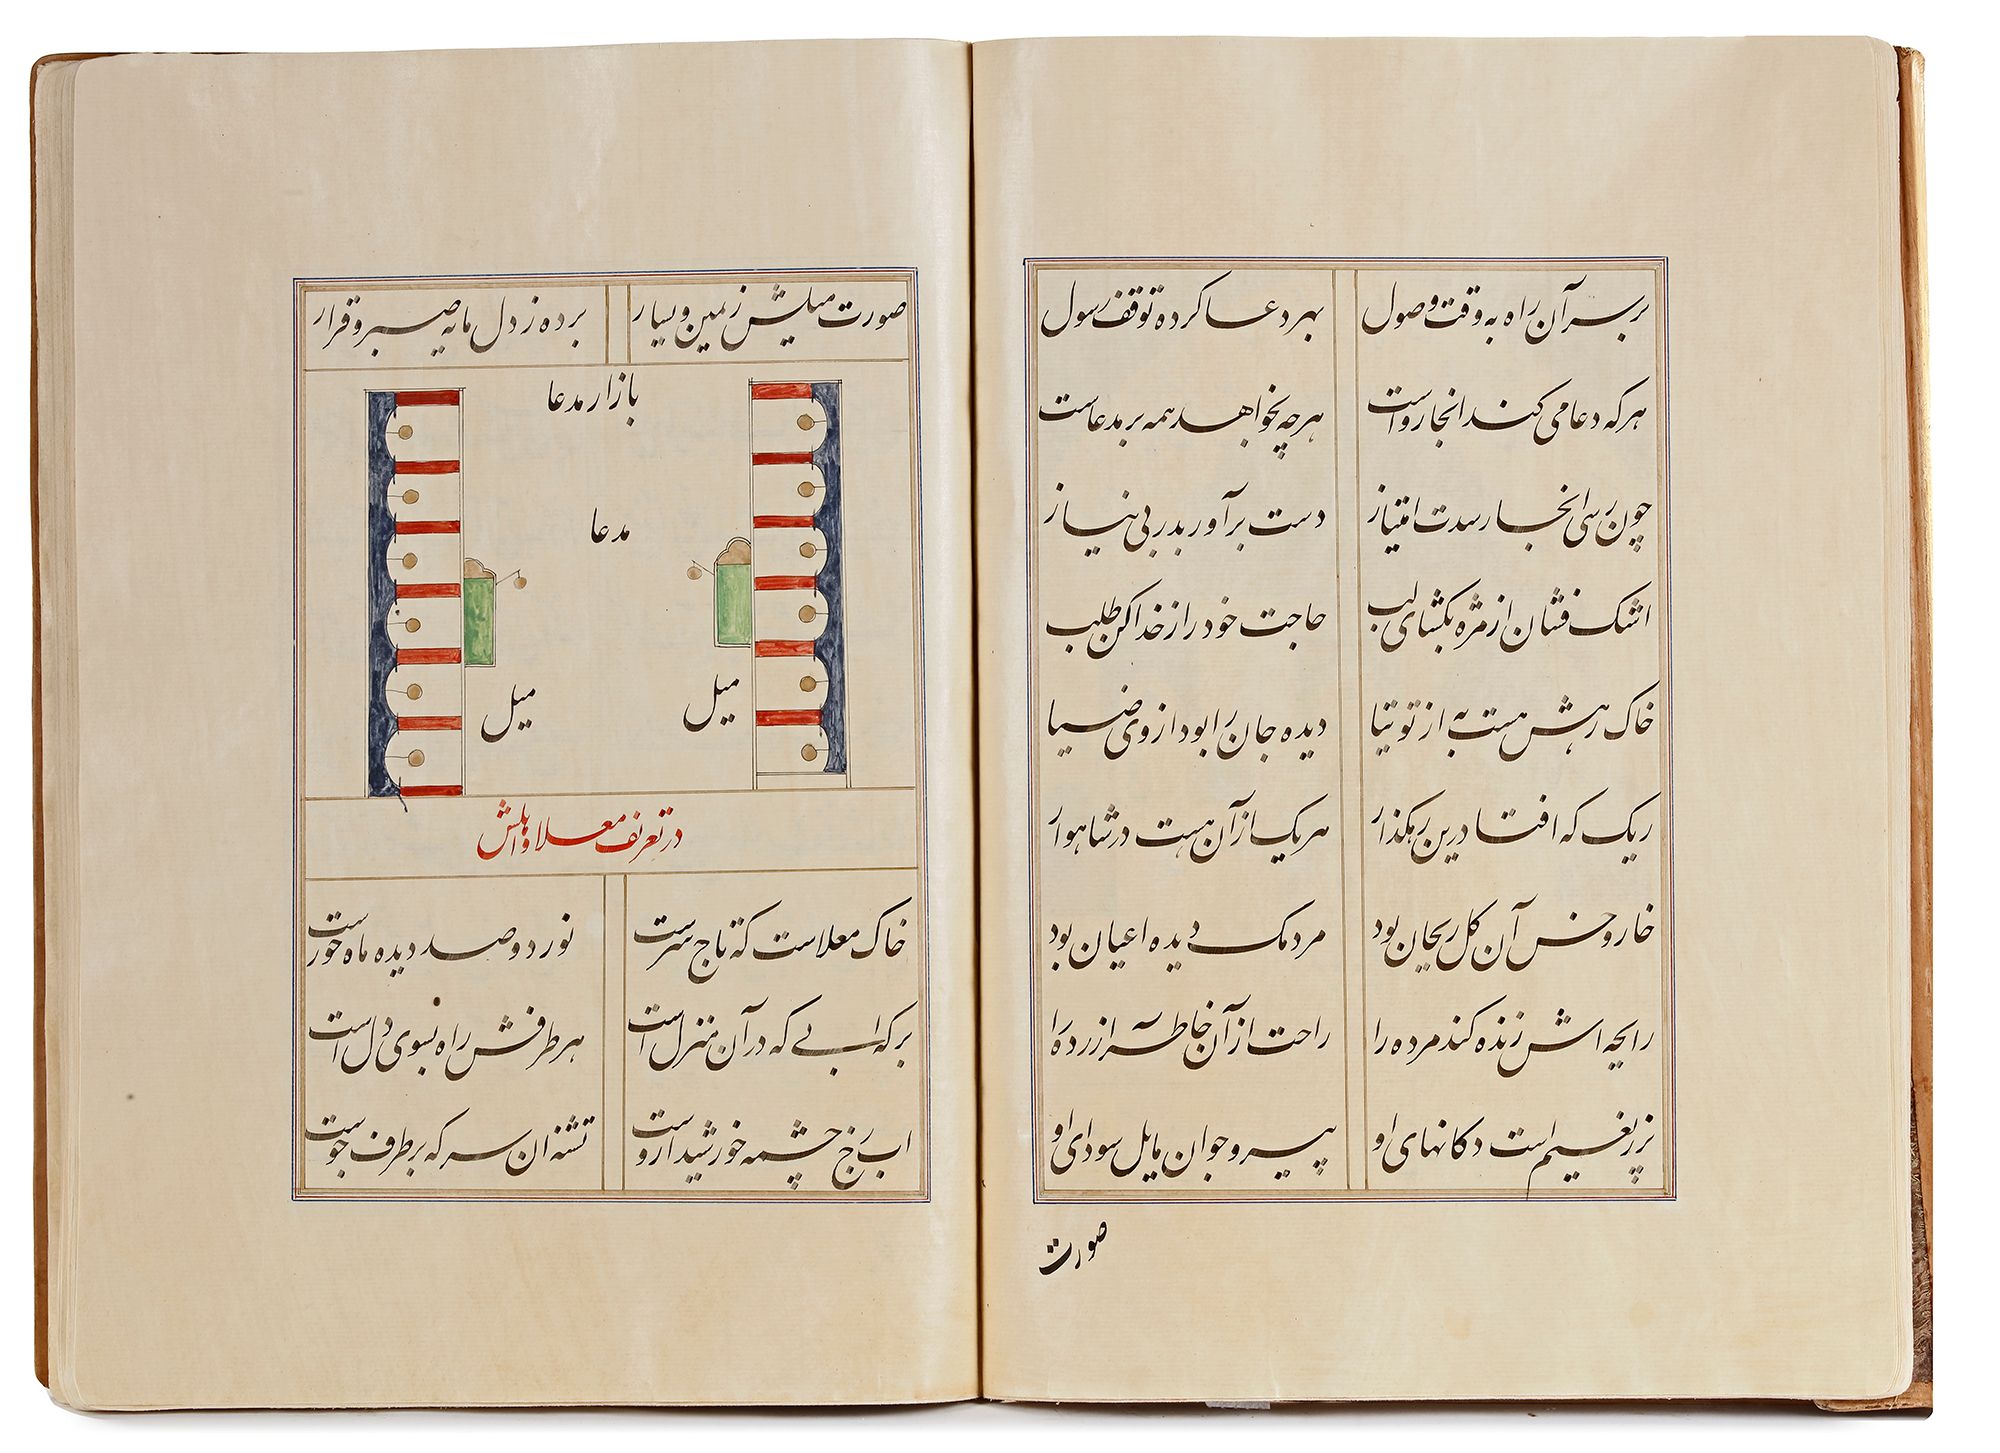 بر سر آن راه به وقت وصول بهر دعا کرده توقف رسول
هر که دعا می کند انجا رواست هر چه بخواهد همه بر مدعاست
چون رسی انجا رسدت امتیاز دست برآور بدر بی نیاز
اشک فشان از مژه بگشای لب حاجت خود را از خدا کن طلب
خاک رهش هست به از توتیا دیده جان را بود از وی ضیا
ریک که افتاد درین رهکذار هر یک از آن هست در شاهوار
خار و خس آن کل ریحان بود مردمک دیده اعیان بود
رایحه اش زنده کند مرده را راحت از آن خاطر آزرده را
پر ز نعیم است دکانهای او پیر و جوان مایل سودای او
صورت
صورت میلش ز یمین و یسار برده ز دل مایه صبر و قرار
بازار مدعا
مدعا
میل میل
در تعریف معلا و اهلش
خاک معلاست که تاج سرست نور ده و صد دیده ماه و خورست
برکه ابی که در آن منزل است هر طرفش راه بسوی دل است
اب رخ چشمه خورشید ازوست تشنه ان سر که بر طرف جوست